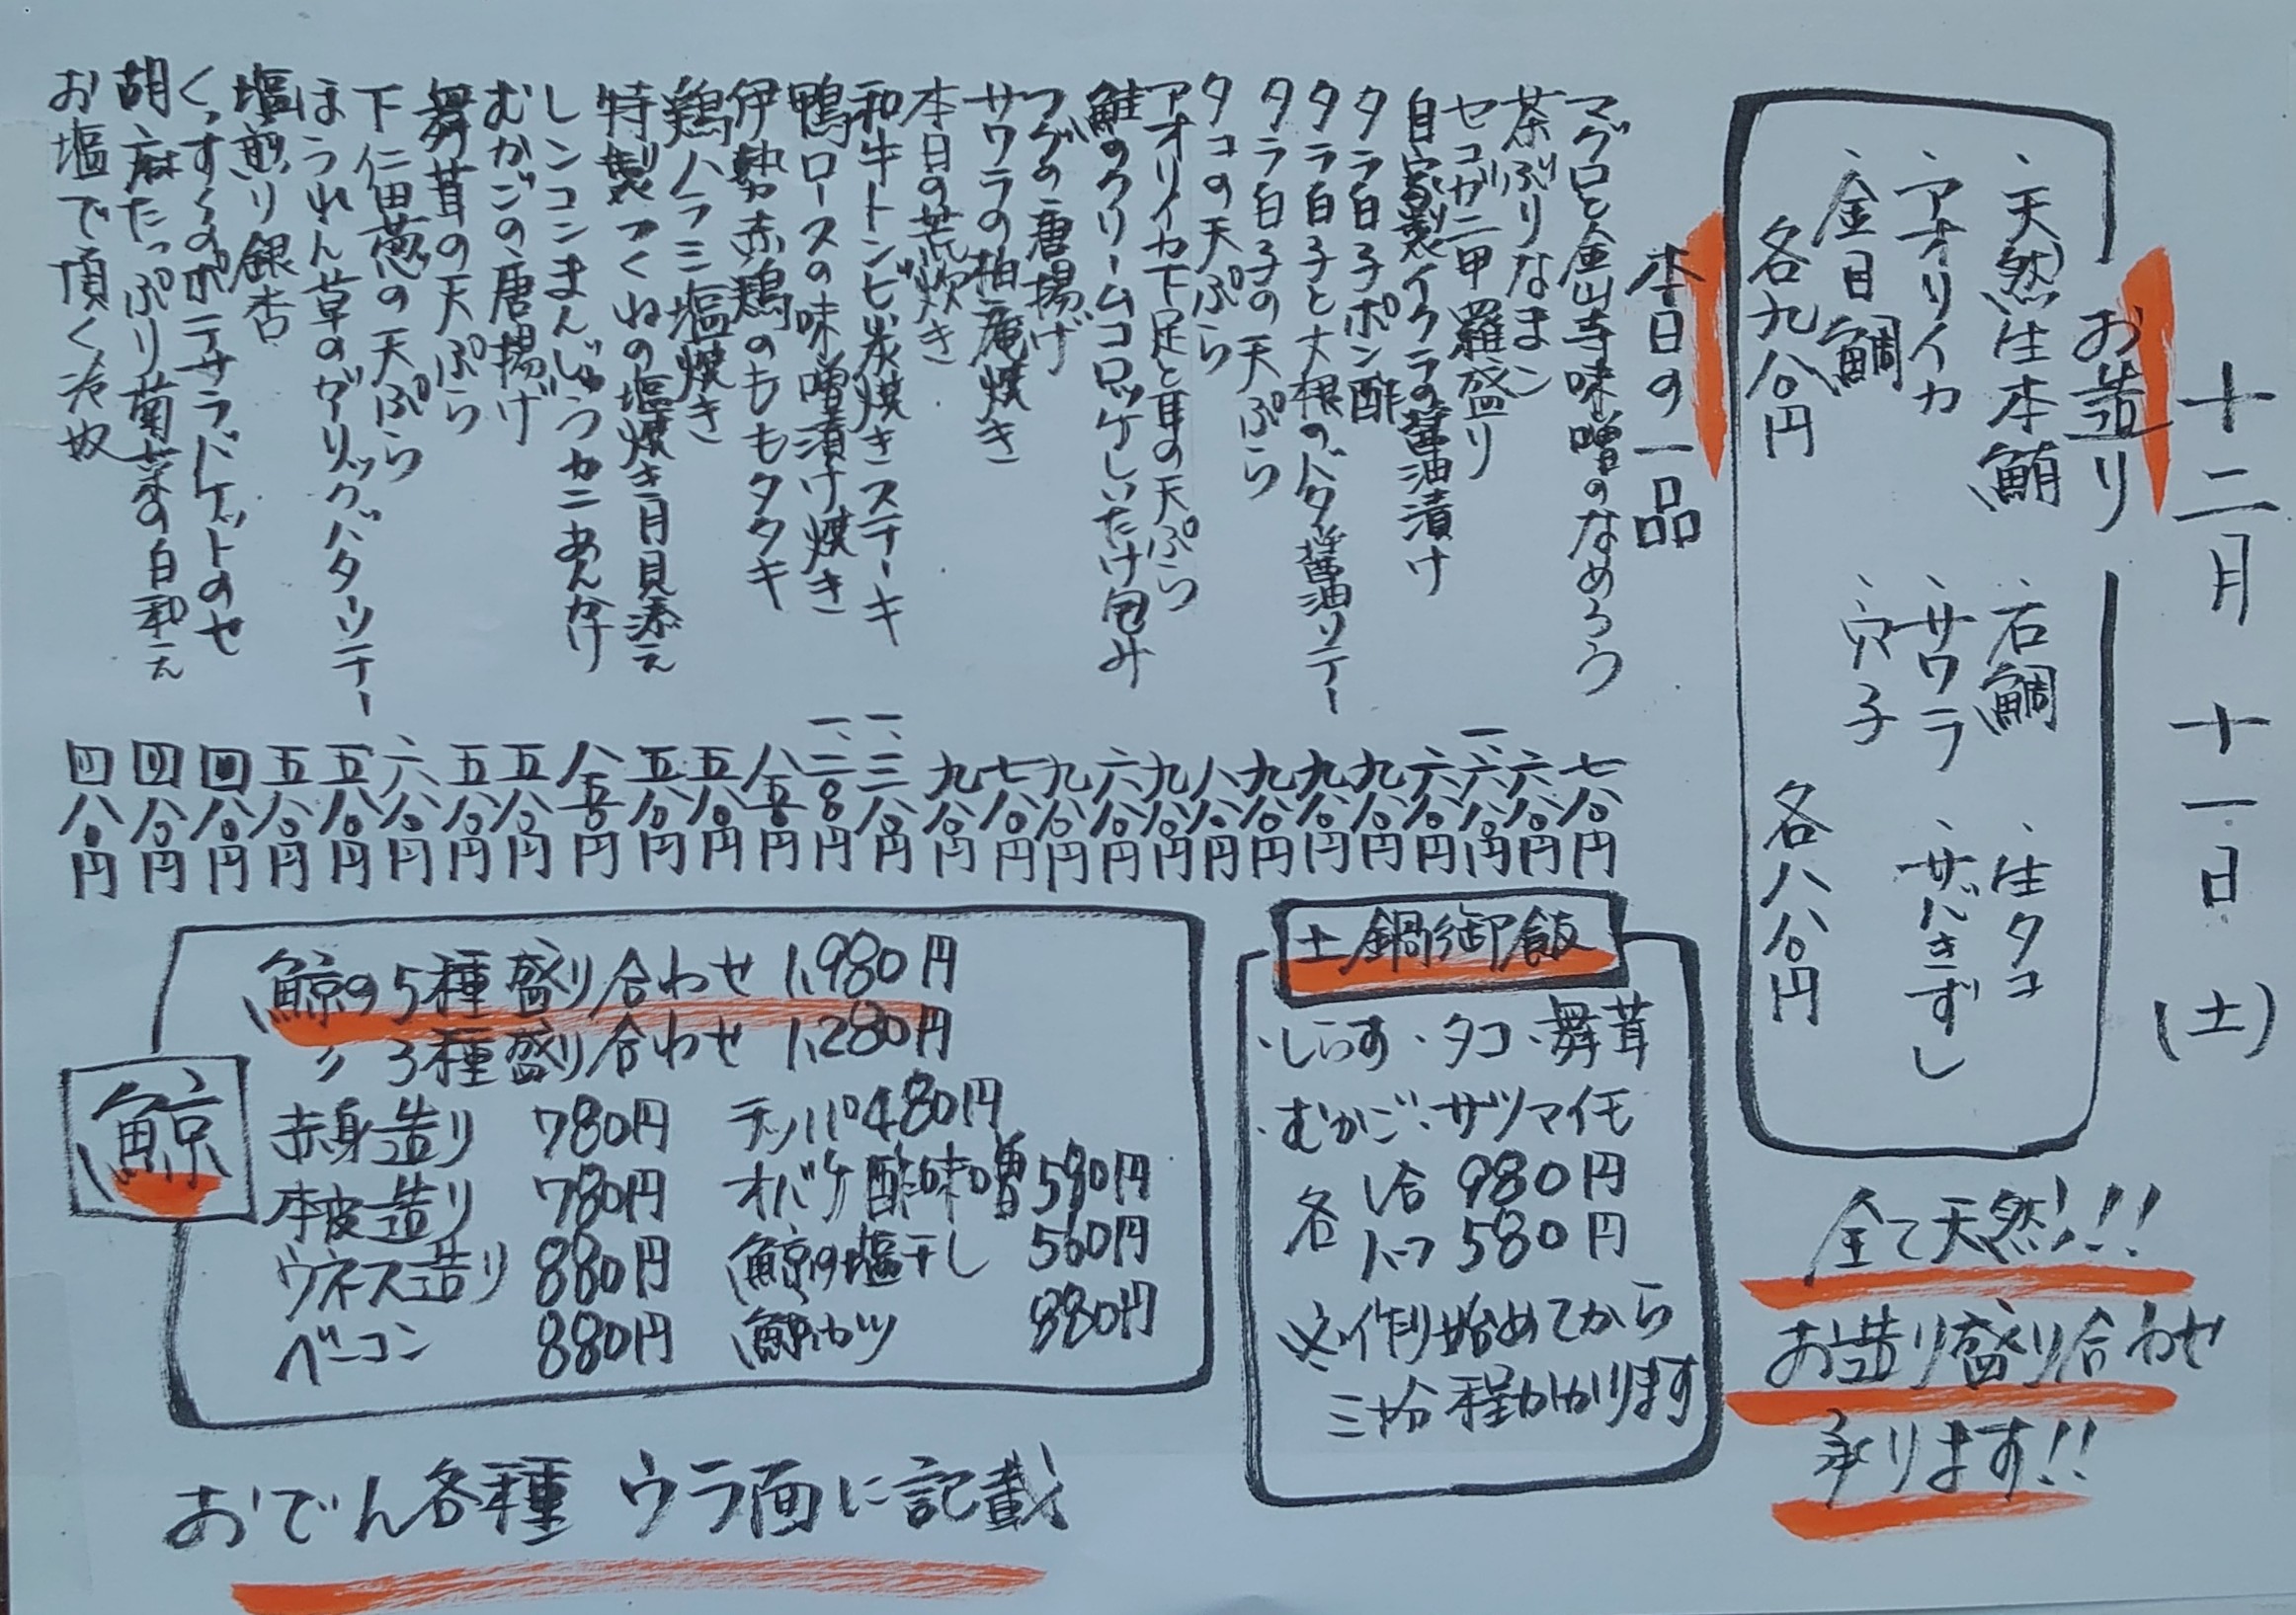 十二月 十一日 (土)
お造り
・天然生本鮪 ・石鯛 ・生タコ
・アオリイカ ・サワラ ・サバきずし
・金目鯛 ・穴子
各九八〇円 各八八〇円
全て天然!!
お造り盛り合わせ
承ります!!
本日の一品
マグロと金山寺味噌のなめろう 七八〇円
茶ぶりなまこ 六八〇円
セコガニ甲羅盛り 一、六八〇円
自家製イクラの醤油漬け 六八〇円
タラ白子ポン酢 九八〇円
タラ白子と大根のバター醤油ソテー 九八〇円
タラ白子の天ぷら 九八〇円
タコの天ぷら 八八〇円
アオリイカ下足と耳の天ぷら 九八〇円
鮭のクリームコロッケしいたけ包み 六八〇円
フグの唐揚げ 九八〇円
サワラの柚庵焼き 七八〇円
本日の荒炊き 九八〇円
和牛トンビ炭焼きステーキ 一、三八〇円
鴨ロースの味噌漬け焼き 一、二八〇円
伊勢赤鶏のももタタキ 八五〇円
鶏ハラミ塩焼き 五八〇円
特製つくねの塩焼き月見添え 五八〇円
レンコンまんじゅうカニあんかけ 八五〇円
むかごの唐揚げ 五八〇円
舞茸の天ぷら 五八〇円
下仁田葱の天ぷら 六八〇円
ほうれん草のガーリックバターソテー 五八〇円
塩煎り銀杏 五八〇円
くっすくのポテサラバケットのせ 四八〇円
胡麻たっぷり菊菜の白和え 四八〇円
お塩で頂く冷奴 四八〇円
土鍋御飯
・しらす・タコ・舞茸
・むかご・サツマイモ
各 1合 980円
各 ハーフ 580円
※作り始めてから
三十分程かかります
鯨
鯨の5種盛り合わせ 1,980円
〃 3種盛り合わせ 1,280円
赤身造り 780円 テッパ 480円
本皮造り 780円 オバケ酢味噌 580円
ウネス造り 880円 鯨の塩干し 560円
ベーコン 880円 鯨カツ 880円
おでん各種 ウラ面に記載